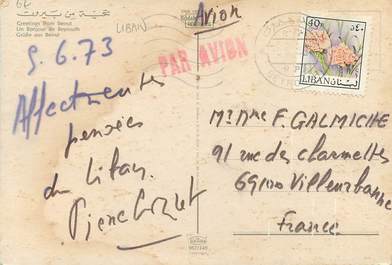 62
تحية من بيروت
Greetings from Beirut
Un Bonjour de Beyrouth
Grüße aus Beirut
LIBAN
Avion
PAR AVION
40
LIBAN
5.6.73
Affectueuses
pensées
du Liban.
Mr. Mme F. GALMICHE
91 rue des charmettes
69100 Villeurbanne
France